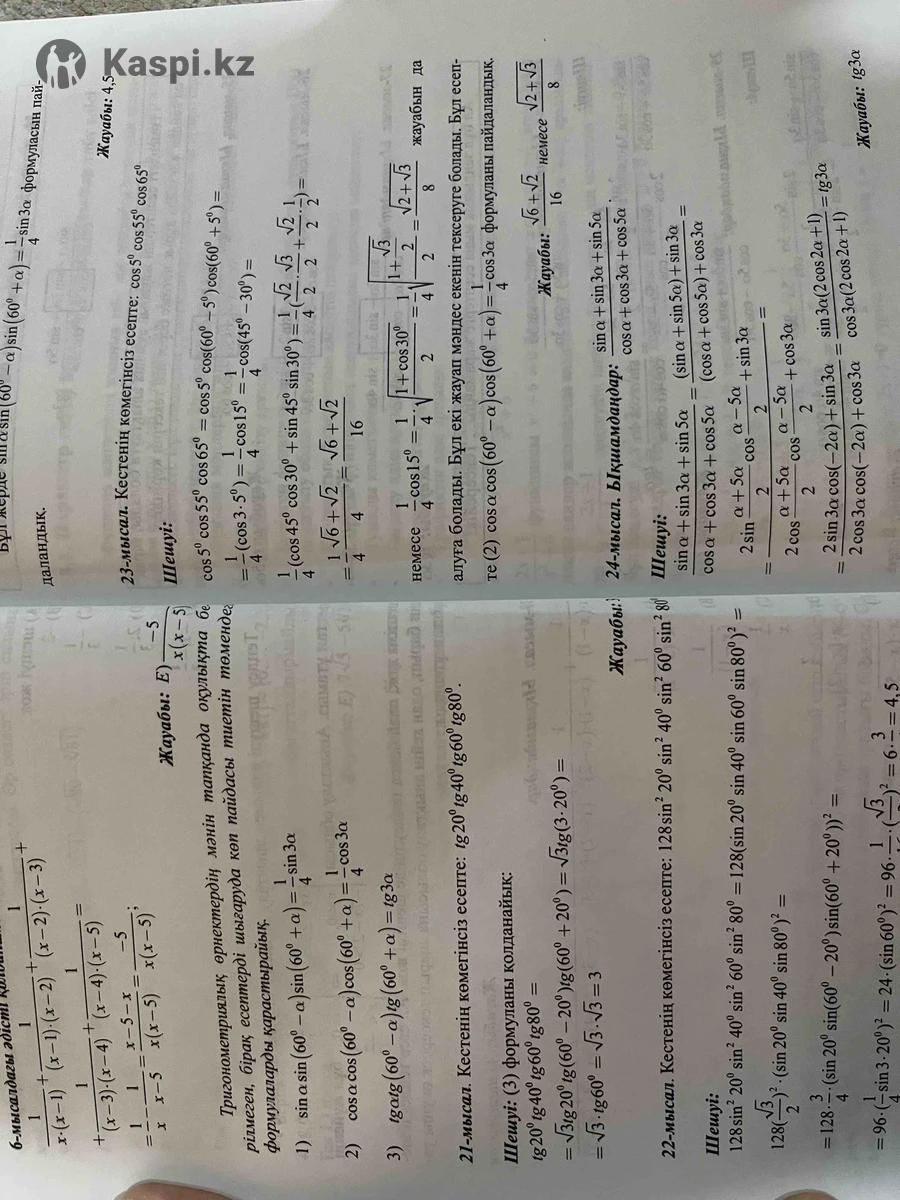 Kaspi.kz
6-мысалдағы әдісті
1/(x·(x−1)) + 1/((x−1)·(x−2)) + 1/((x−2)·(x−3)) +
+ 1/((x−3)·(x−4)) + 1/((x−4)·(x−5)) =
= 1/x − 1/(x−5) = (x−5−x)/(x(x−5)) = −5/(x(x−5));
Жауабы: E) −5/(x(x−5))
Тригонометриялық өрнектердің мәнін тапқанда оқулықта бе
рілмеген, бірақ есептерді шығаруда көп пайдасы тиетін төмендег
формулаларды қарастырайық.
1) sinα sin(60⁰ − α) sin(60⁰ + α) = 1/4 sin3α
2) cosα cos(60⁰ − α) cos(60⁰ + α) = 1/4 cos3α
3) tgα tg(60⁰ − α) tg(60⁰ + α) = tg3α
21-мысал. Кестенің көмегінсіз есепте: tg20⁰tg40⁰tg60⁰tg80⁰.
Шешуі: (3) формуланы қолданайық:
tg20⁰tg40⁰tg60⁰tg80⁰ =
= √3tg20⁰tg(60⁰ − 20⁰)tg(60⁰ + 20⁰) = √3tg(3·20⁰) =
= √3·tg60⁰ = √3·√3 = 3
Жауабы:
22-мысал. Кестенің көмегінсіз есепте: 128sin²20⁰ sin²40⁰ sin²60⁰ sin²80⁰
Шешуі:
128sin²20⁰ sin²40⁰ sin²60⁰ sin²80⁰ = 128(sin20⁰ sin40⁰ sin60⁰ sin80⁰)² =
128(√3/2)²·(sin20⁰ sin40⁰ sin80⁰)² =
= 128·3/4·(sin20⁰ sin(60⁰ − 20⁰)sin(60⁰ + 20⁰))² =
= 96·(1/4 sin3·20⁰)² = 24·(sin60⁰)² = 96·1/16·(√3/2)² = 6·3/4 = 4,5
Бұл жерде sinα sin(60⁰ − α) sin(60⁰ + α) = 1/4 sin3α формуласын пай-
даландық.
Жауабы: 4,5
23-мысал. Кестенің көмегінсіз есепте: cos5⁰ cos55⁰ cos65⁰
Шешуі:
cos5⁰ cos55⁰ cos65⁰ = cos5⁰ cos(60⁰ − 5⁰)cos(60⁰ + 5⁰) =
= 1/4(cos3·5⁰) = 1/4 cos15⁰ = 1/4 cos(45⁰ − 30⁰) =
1/4(cos45⁰ cos30⁰ + sin45⁰ sin30⁰) = 1/4(√2/2·√3/2 + √2/2·1/2) =
= 1/4 (√6+√2)/4 = (√6+√2)/16
немесе 1/4 cos15⁰ = 1/4·√((1+cos30⁰)/2) = 1/4√((1+√3/2)/2) = √(2+√3)/8 жауабын да
алуға болады. Бұл екі жауап мәндес екенін тексеруге болады. Бұл есеп-
те (2) cosα cos(60⁰ − α)cos(60⁰ + α) = 1/4 cos3α формуланы пайдаландық.
Жауабы: (√6+√2)/16 немесе √(2+√3)/8
24-мысал. Ықшамдаңдар: (sinα + sin3α + sin5α)/(cosα + cos3α + cos5α).
Шешуі:
(sinα + sin3α + sin5α)/(cosα + cos3α + cos5α) = ((sinα + sin5α) + sin3α)/((cosα + cos5α) + cos3α) =
= (2sin (α+5α)/2 cos (α−5α)/2 + sin3α)/(2cos (α+5α)/2 cos (α−5α)/2 + cos3α) =
= (2sin3α cos(−2α) + sin3α)/(2cos3α cos(−2α) + cos3α) = (sin3α(2cos2α+1))/(cos3α(2cos2α+1)) = tg3α
Жауабы: tg3α